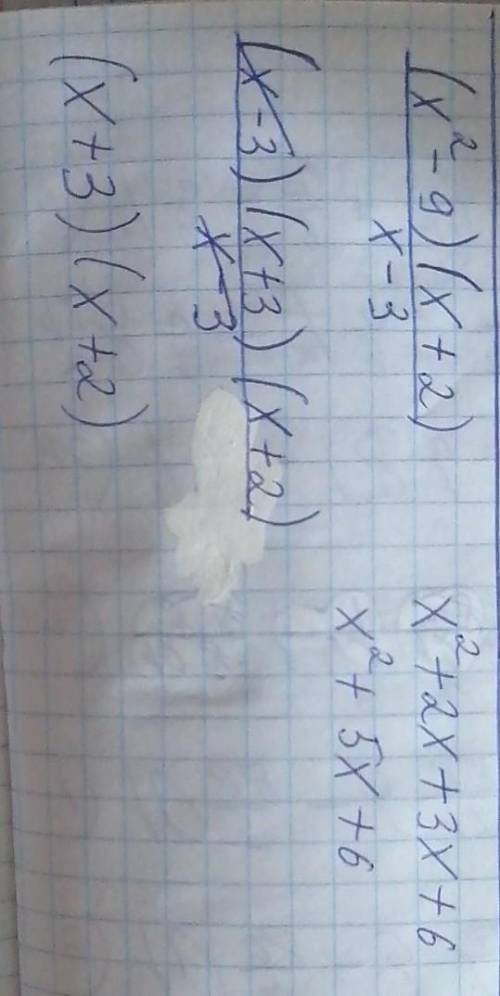 (x² - 9)(x + 2)
x - 3
(x - 3)(x + 3)(x + 2)
x - 3
(x + 3)(x + 2)
x² + 2x + 3x + 6
x² + 5x + 6